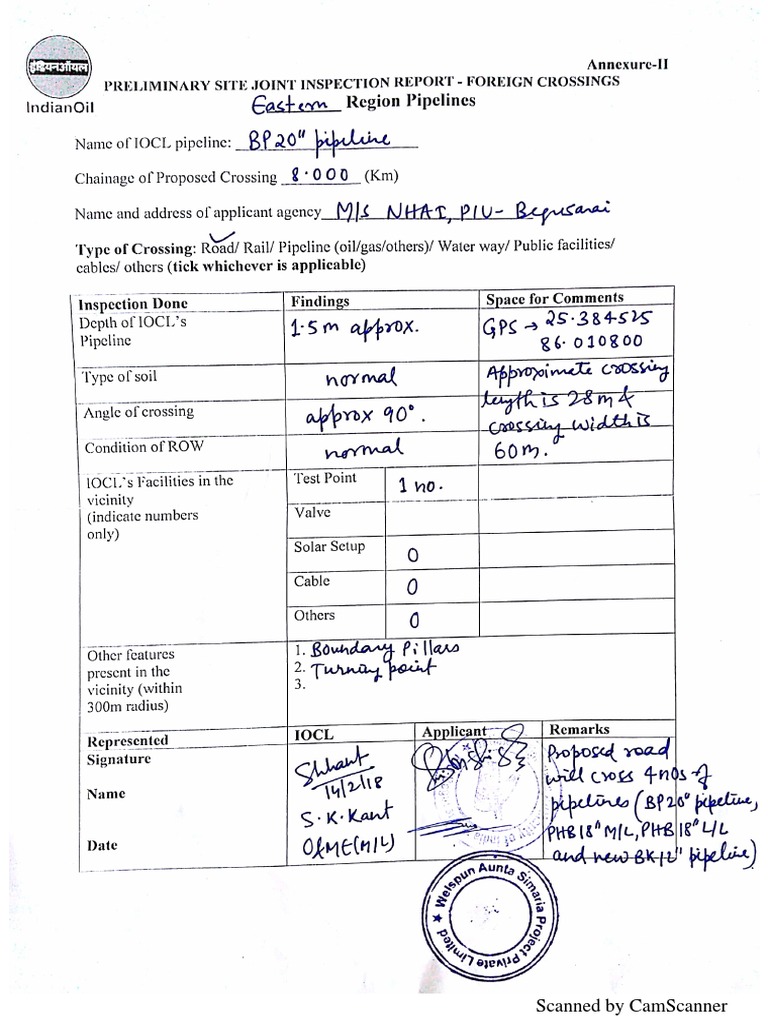 इंडियनऑयल
IndianOil
Annexure-II
PRELIMINARY SITE JOINT INSPECTION REPORT - FOREIGN CROSSINGS
Eastern Region Pipelines
Name of IOCL pipeline: BP 20" pipeline
Chainage of Proposed Crossing 8.000 (Km)
Name and address of applicant agency M/s NHAI, PIU- Begusarai
Type of Crossing: Road/ Rail/ Pipeline (oil/gas/others)/ Water way/ Public facilities/
cables/ others (tick whichever is applicable)
Inspection Done Findings Space for Comments
Depth of IOCL's
Pipeline
1.5m approx.
GPS → 25.384525
86.010800
Type of soil normal
Approximate crossing
length is 28m &
crossing width is
60m.
Angle of crossing approx 90°.
Condition of ROW normal
IOCL's Facilities in the
vicinity
(indicate numbers
only)
Test Point 1 no.
Valve
Solar Setup 0
Cable 0
Others 0
Other features
present in the
vicinity (within
300m radius)
1. Boundary Pillars
2. Turning point
3.
Represented IOCL Applicant Remarks
Signature
14/2/18
Name
S.K.Kant
Date
Proposed road
will cross 4nos of
pipelines (BP20" pipeline,
PHB 18" M/L, PHB 18" L/L
and new BK12" pipeline)
Welspun Aunta Simaria Project Private Limited
Scanned by CamScanner